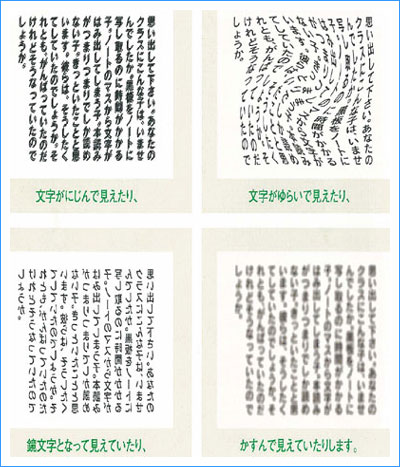 思い出して下さい。あなたの
クラスにこんな子は、いませ
んでしたか。黒板をノートに
写し取るのに時間がかかる
子。ノートのマスから文字が
はみ出してしまう子。本読み
がつまりつまりでしか読め
ない子。きっといたことと思
います。彼らは、そうしたく
てしていたのでしょうか。そ
れとも、がんばっていたのだ
けれどそうなっていたので
しょうか。
文字がにじんで見えたり、
思い出して下さい。あなたの
クラスにこんな子は、いませ
んでしたか。黒板をノートに
写し取るのに時間がかかる
子。ノートのマスから文字が
はみ出してしまう子。本読み
がつまりつまりでしか読め
ない子。きっといたことと思
います。彼らは、そうしたく
てしていたのでしょうか。そ
れとも、がんばっていたのだ
けれどそうなっていたので
しょうか。
文字がゆらいで見えたり、
思い出して下さい。あなたの
クラスにこんな子は、いませ
んでしたか。黒板をノートに
写し取るのに時間がかかる
子。ノートのマスから文字が
はみ出してしまう子。本読み
がつまりつまりでしか読め
ない子。きっといたことと思
います。彼らは、そうしたく
てしていたのでしょうか。そ
れとも、がんばっていたのだ
けれどそうなっていたので
しょうか。
鏡文字となって見えていたり、
思い出して下さい。あなたの
クラスにこんな子は、いませ
んでしたか。黒板をノートに
写し取るのに時間がかかる
子。ノートのマスから文字が
はみ出してしまう子。本読み
がつまりつまりでしか読め
ない子。きっといたことと思
います。彼らは、そうしたく
てしていたのでしょうか。そ
れとも、がんばっていたのだ
けれどそうなっていたので
しょうか。
かすんで見えていたりします。